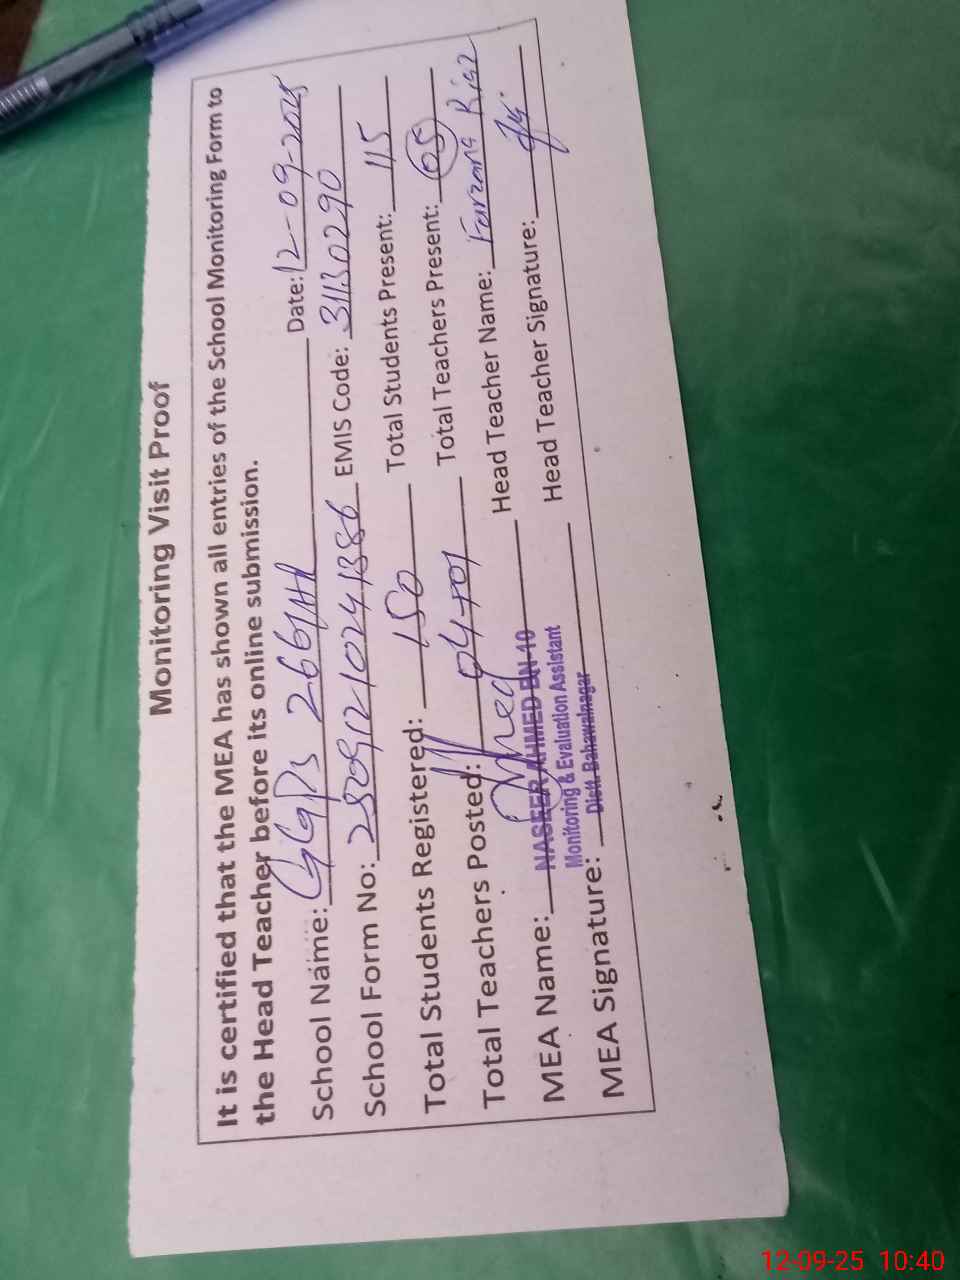 Monitoring Visit Proof
It is certified that the MEA has shown all entries of the School Monitoring Form to
the Head Teacher before its online submission.
School Name: GGPS 266/HR Date: 12-09-2025
School Form No: 250912-10241386 EMIS Code: 31130290
Total Students Registered: 150 Total Students Present: 115
Total Teachers Posted: 04+01 Total Teachers Present: 05
MEA Name: NASEER AHMED BN-10 Head Teacher Name: Farzana Riaz
Monitoring & Evaluation Assistant
MEA Signature: Distt. Bahawalnagar Head Teacher Signature:
12-09-25 10:40